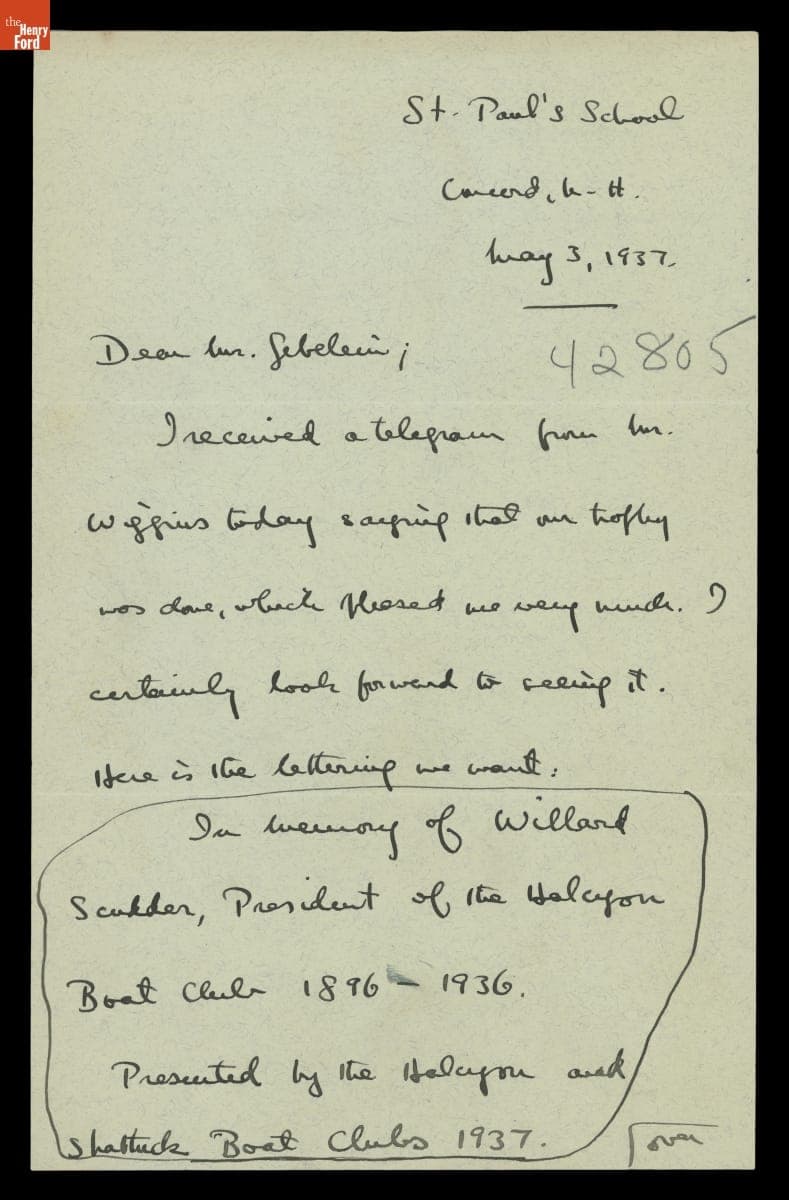 the
Henry
Ford
St. Paul's School
Concord, N-H.
May 3, 1937.
Dear Mr. Gebelein;
42805
I received a telegram from Mr.
Wiggins today saying that our trophy
was done, which pleased me very much. I
certainly look forward to seeing it.
Here is the lettering we want:
In memory of Willard
Scudder, President of the Halcyon
Boat Club 1896 - 1936.
Presented by the Halcyon and
Shattuck Boat Clubs 1937.
over